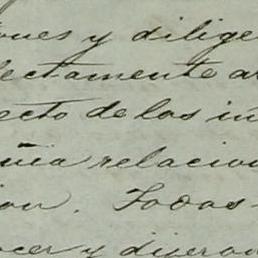 ones y dilige
lectamente ar
ecto de los in
uia relacion
ion. Todos
ocer y dijeron